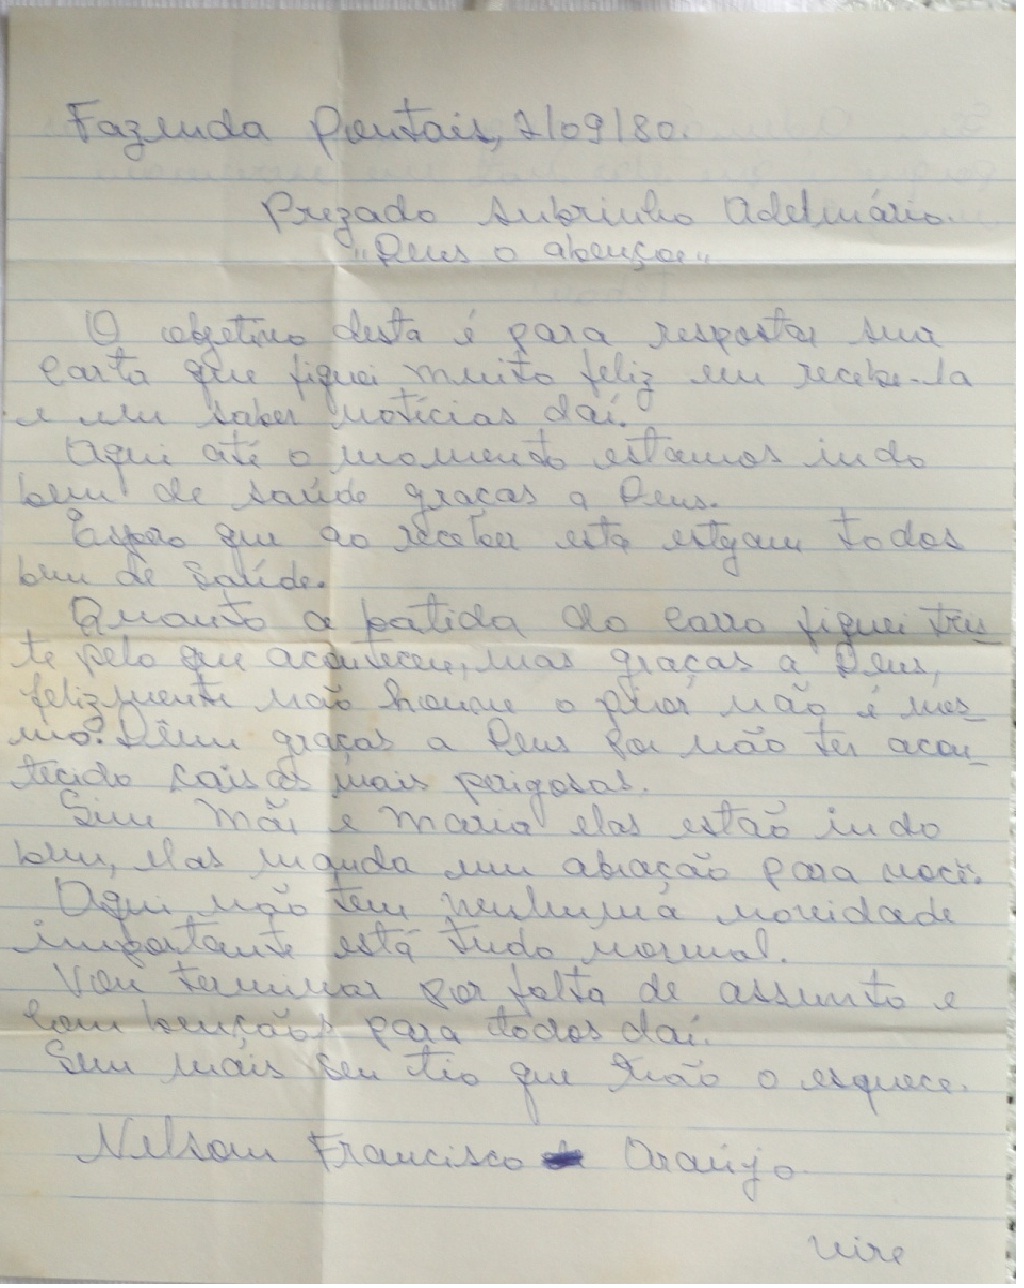 Fazenda Pontais, 7/09/80.
Prezado subrinho Adelmário.
"Deus o abençoe"
O objetivo desta é para respostar sua
carta que fiquei muito feliz em recebe-la
e em saber notícias daí.
Aqui até o momento estamos indo
bem de saúde graças a Deus.
Espero que ao receber esta estejam todos
bem de saúde.
Quanto a batida do carro fiquei tris-
te pelo que aconteceu, mas graças a Deus,
felizmente não houve o pior não é mes-
mo? Dêem graças a Deus por não ter acon-
tecido coisas mais perigosas.
Sim Mãe e Maria elas estão indo
bem, elas manda um abração para você.
Aqui não tem nenhuma novidade
importante está tudo normal.
Vou terminar por falta de assunto e
com bençãos para todos daí.
Sem mais seu tio que não o esquece.
Nelson Francisco Araújo
vire